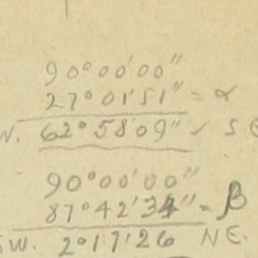 90°00'00"
27°01'51" = α
W. 62°58'09" ✓ S E
90°00'00"
87°42'34" = β
SW. 2°17'26 NE.